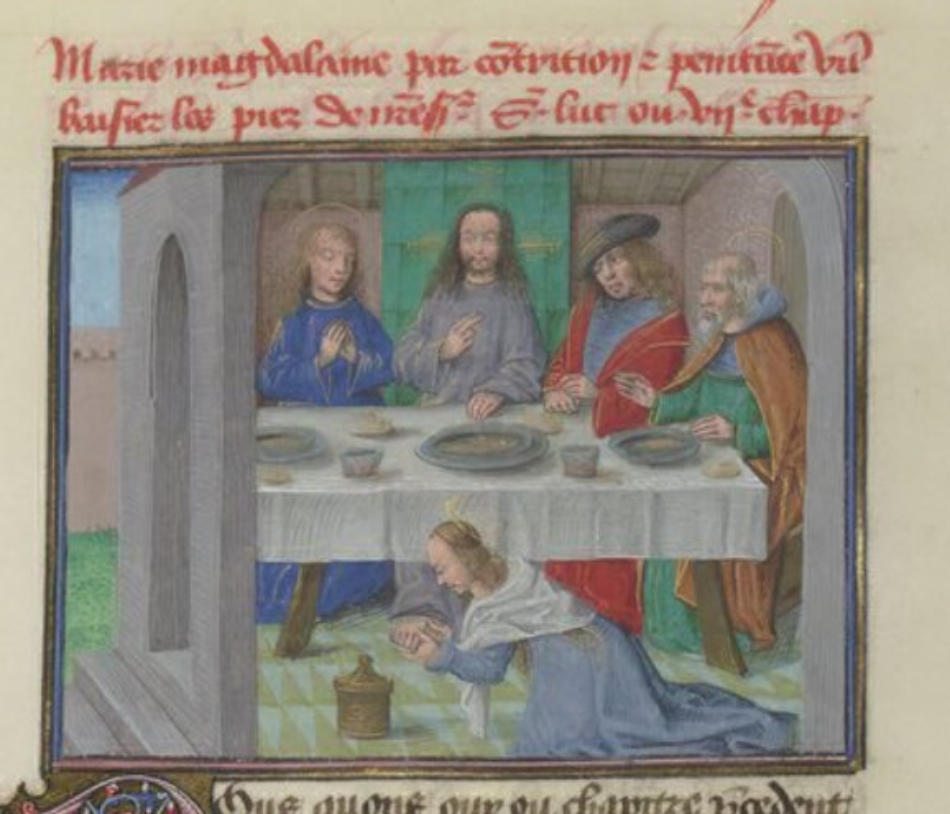 Marie magdalaine par cōtrition ⁊ penitāce vit
baisier les piez de nr̄e sr̄ S. luc ou vij.e chap.
Que au chapitre p̄cedent